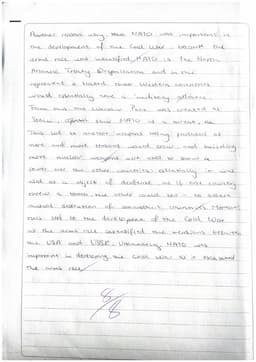 Another reason why the NATO was important in
the development of the Cold War is because the
arms race was intensified. NATO is the North
Atlantic Treaty Organisation and in this
represent a treaty that Western countries
would essentially have a 'military alliance'.
From this, the Warsaw Pact was created as
Stalin saw NATO as a threat, so
This led to nuclear weapons being produced as
more and more tensions would grow, and building
more nuclear weapons
over the other countries essentially it was
also as a object of defense, as if one country
threw a bomb the other would too - so where
mutual destruction of
led to the development of the Cold War
as the arms race intensified the tensions between
the USA and USSR. Ultimately NATO was
important in developing the Cold War as it
the arms race.
8/8